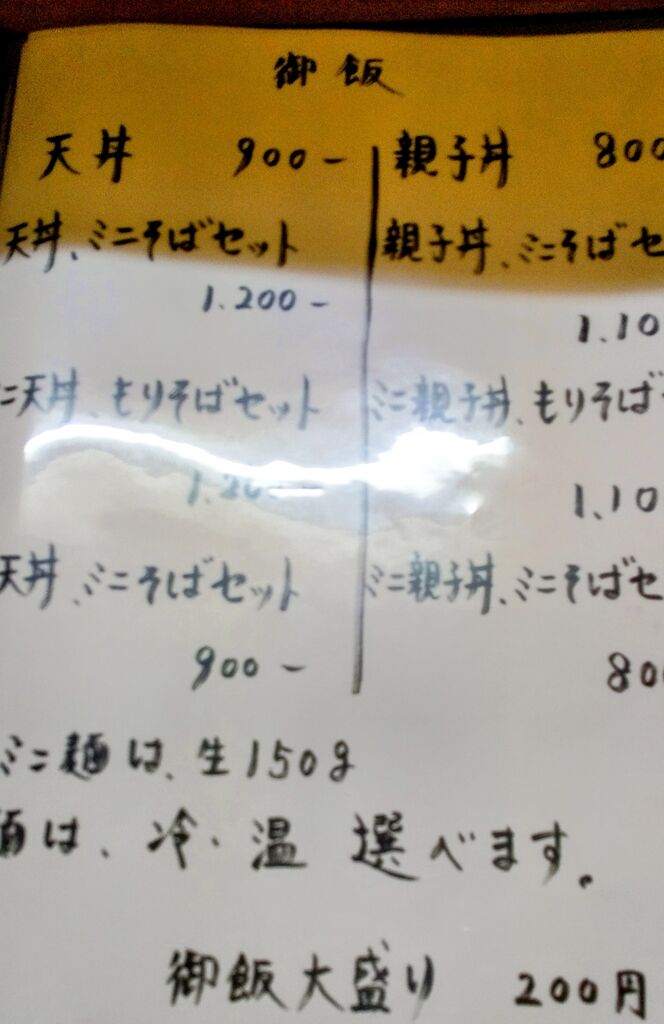 御飯
天丼 900-
天丼、ミニそばセット
1.200-
ニ天丼、もりそばセット
1.20
天丼、ミニそばセット
900-
親子丼 800
親子丼、ミニそばセ
1.10
ミニ親子丼、もりそば
1.10
ミニ親子丼、ミニそばセ
800
ミニ麺は、生150g
麺は、冷・温 選べます。
御飯大盛り 200円